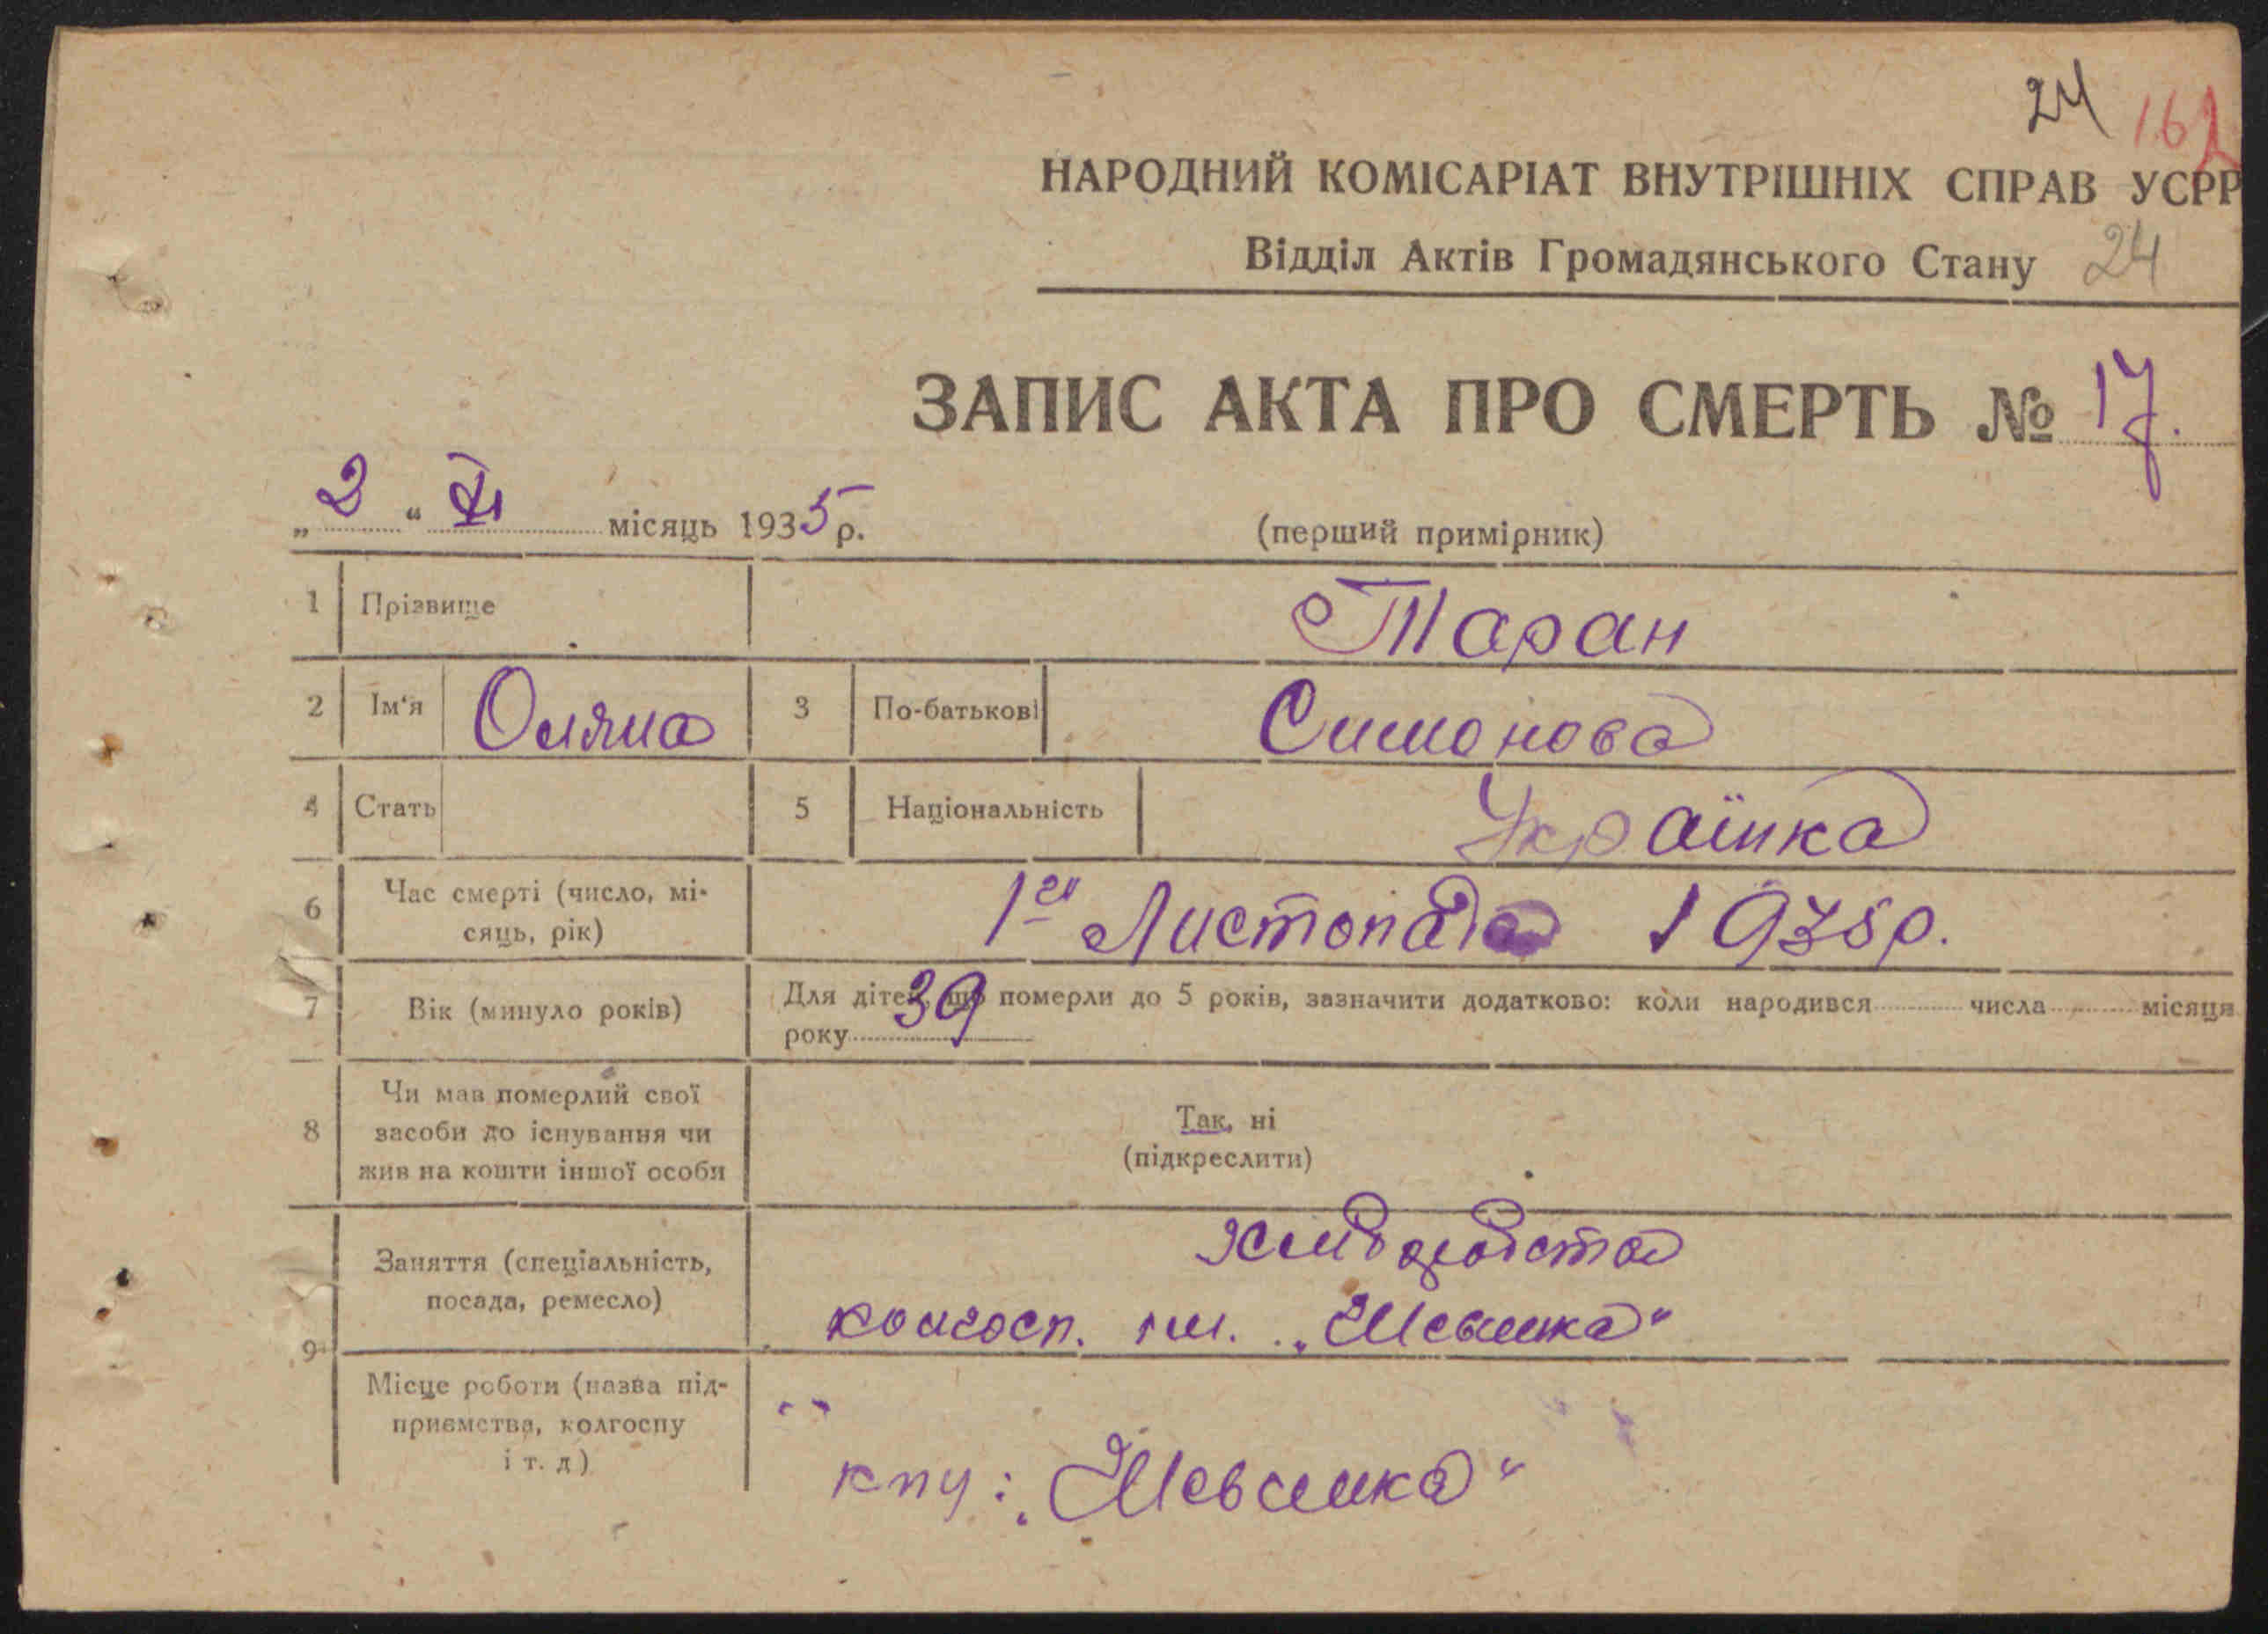 24 162
НАРОДНИЙ КОМІСАРІАТ ВНУТРІШНІХ СПРАВ УСРР
Відділ Актів Громадянського Стану 24
ЗАПИС АКТА ПРО СМЕРТЬ № 17.
„2“ XI місяць 1935 р.
(перший примірник)
1 Прізвище Таран
2 Ім‘я Оляна 3 По-батькові Симонова
4 Стать 5 Національність Українка
6 Час смерті (число, мі-
сяць, рік)
1го Листопада 1935 р.
7 Вік (минуло років) 39
Для дітей, що померли до 5 років, зазначити додатково: коли народився числа місяця
року
8 Чи мав померлий свої
засоби до існування чи
жив на кошти іншої особи
Так, ні
(підкреслити)
9 Заняття (спеціальність,
посада, ремесло)
колгосп. ім. „Шевченка“
Місце роботи (назва під-
приємства, колгоспу
і т. д)
„Шевченка“